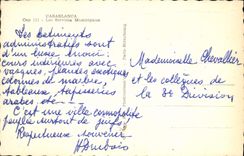 CASABLANCA
Les Services Municipaux
Les batiments
administratifs sont
d'un luxe inouï :
cours intérieures avec
vasques, plantes exotiques
colonnes de marbre,
tableaux, tapisseries
arabes, etc...
C'est une ville cosmopolite
peuplée surtout de juifs !
Respectueux souvenir
Mademoiselle Chevallier
et les collègues de
la 8e Division